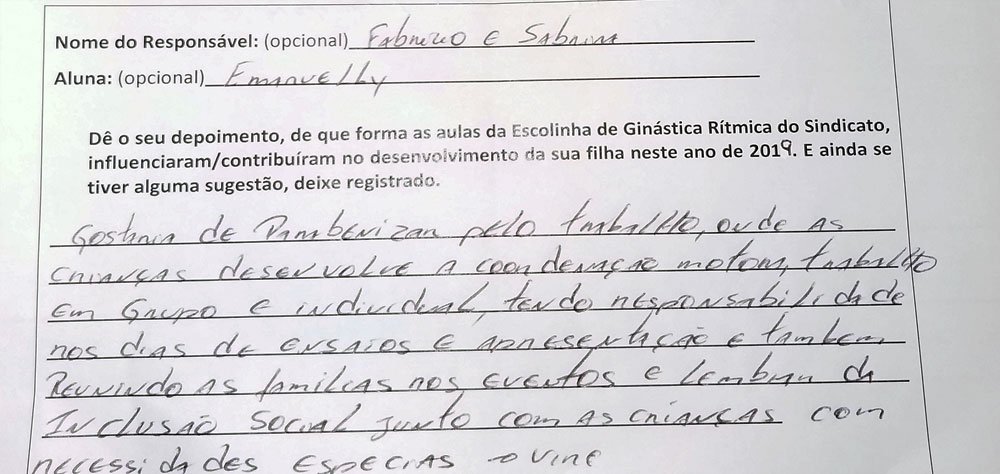 Nome do Responsável: (opcional) Fabrizio e Sabrina
Aluna: (opcional) Emanuelly
Dê o seu depoimento, de que forma as aulas da Escolinha de Ginástica Rítmica do Sindicato,
influenciaram/contribuíram no desenvolvimento da sua filha neste ano de 2019. E ainda se
tiver alguma sugestão, deixe registrado.
Gostaria de Parabenizar pelo trabalho, onde as
crianças desenvolve a coordenação motora, trabalho
em Grupo e individual, tendo responsabilidade
nos dias de ensaios e apresentação e tambem
Reunindo as familias nos eventos e lembrar da
Inclusão Social junto com as crianças com
necessidades especias